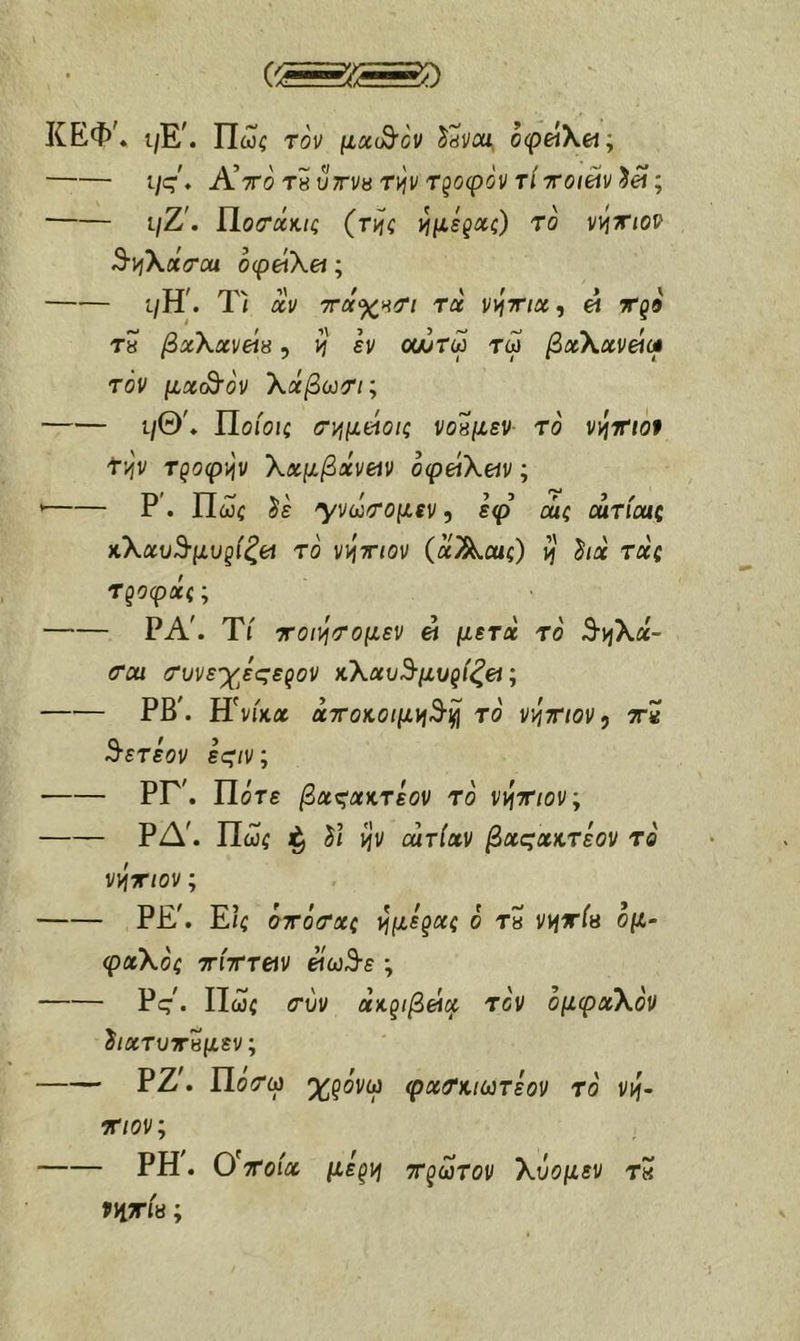 ΚΕΦ'. ϟΕ'. Πῶς τὸν μαϑὸν δοῦναι ὀφείλει;
—— ϟϛ'. Ἀπὸ τοῦ ὕπνου τὴν τροφὸν τί ποιεῖν δεῖ;
—— ϟΖ'. Ποσάκις (τῆς ἡμέρας) τὸ νήπιον
ϑηλάσαι ὀφείλει;
—— ϟΗ'. Τὶ ἂν πάχουσι τὰ νήπια, εἰ πρὸ
τοῦ βαλανείου, ἢ ἐν αὐτῷ τῷ βαλανείῳ
τὸν μαϑὸν λάβωσι;
—— ϟΘ'. Ποίοις σημείοις νοοῦμεν τὸ νήπιον
τὴν τροφὴν λαμβάνειν ὀφείλειν;
—— Ρ'. Πῶς δὲ γνώσομεν, ἐφ' αἷς αἰτίαις
κλαυϑμυρίζει τὸ νήπιον (ἄλλαις) ἢ διὰ τὰς
τροφάς;
—— ΡΑ'. Τί ποιήσομεν εἰ μετὰ τὸ ϑηλά-
σαι συνεχέστερον κλαυϑμυρίζει;
—— ΡΒ'. Ἡνίκα ἀποκοιμηϑῇ τὸ νήπιον, ποῦ
ϑετέον ἐστίν;
—— ΡΓ'. Πότε βαστακτέον τὸ νήπιον;
—— ΡΔ'. Πῶς ϗ δὶ ἣν αἰτίαν βαστακτέον τὸ
νήπιον;
—— ΡΕ'. Εἰς ὁπόσας ἡμέρας ὁ τοῦ νηπίου ὀμ-
φαλὸς πίπτειν εἴωϑε;
—— Ρϛ'. Πῶς σὺν ἀκριβείᾳ τὸν ὀμφαλὸν
διατυποῦμεν;
—— ΡΖ'. Πόσῳ χρόνῳ φασκιωτέον τὸ νή-
πιον;
—— ΡΗ'. Ὁποία μέρη πρῶτον λύομεν τοῦ
νηπίου;